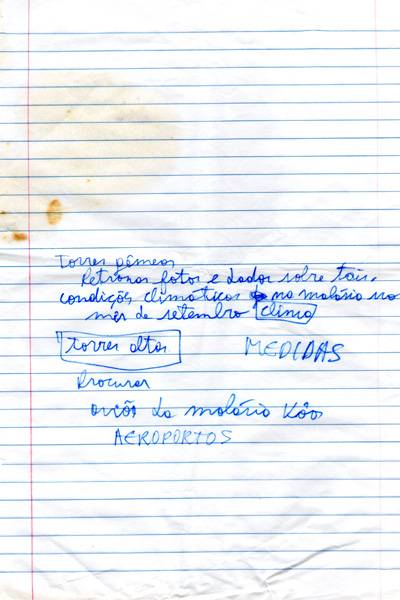 Torres gêmeas
Retronar fotos e dados sobre tais
condições climáticas na malária no
mês de setembro clima
"torres altas
MEDIDAS
Procurar
da malária
AEROPORTOS